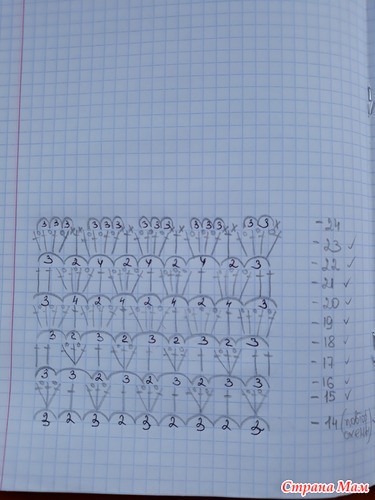 3 3 3 3 3 3 3 3 3 3 3 3 3 3 - 24
- 23 ✓
3 2 4 2 4 2 4 2 3 - 22 ✓
- 21 ✓
3 4 2 4 2 4 2 4 3 - 20 ✓
- 19 ✓
3 2 3 2 3 2 3 2 3 - 18 ✓
- 17 ✓
3 3 2 3 2 3 2 3 3 - 16 ✓
- 15 ✓
3 2 3 2 3 2 3 2 3 - 14
Страна Мам